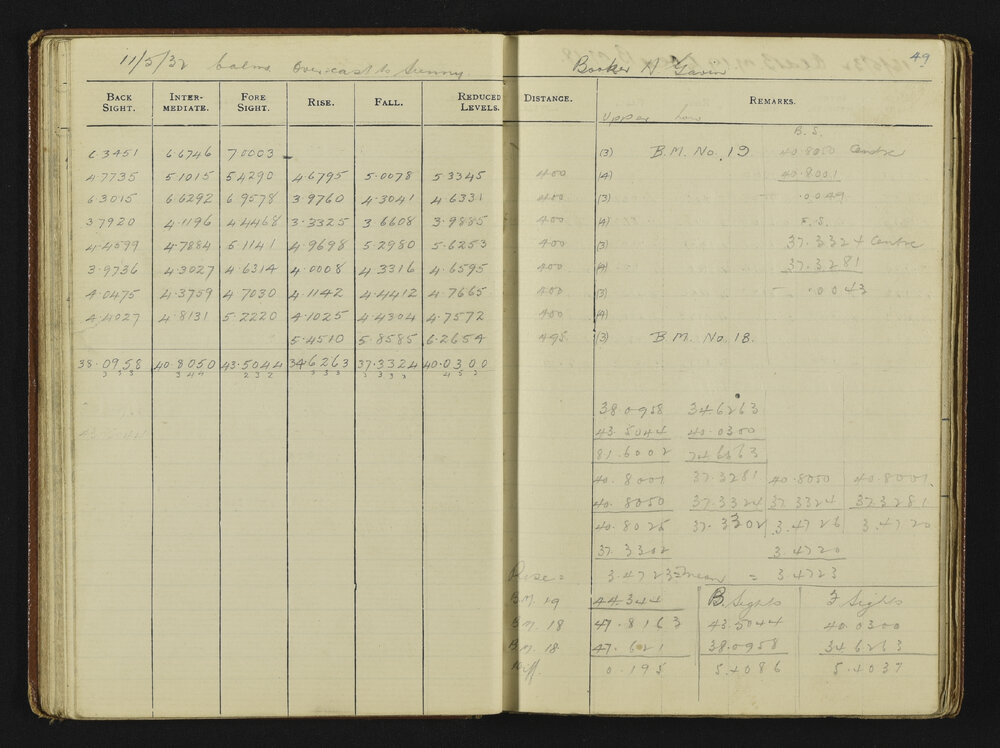 49
11/5/32 Calm Overcast to Sunny Booker N Gavin
BACK SIGHT. INTER-MEDIATE. FORE SIGHT. RISE. FALL. REDUCED LEVELS. DISTANCE. REMARKS.
Upper Low
B.S.
6 3451 6.6746 7.0003 (3) B.M. No. 19 40.8050 Centre
4.7735 5.1015 5.4290 4.6795 5.0078 5.3345 400 (4) 40.8001
6.3015 6.6292 6.9578 3.9760 4.3041 4.6331 400 (3) .0049
3.7920 4.1196 4.4468 3.3325 3.6608 3.9885 400 (4) F.S.
4.4599 4.7884 5.1141 4.9698 5.2980 5.6253 400 (3) 37.3324 Centre
3.9736 4.3027 4.6314 4.0008 4.3316 4.6595 400 (4) 37.3281
4.0475 4.3759 4.7030 4.1142 4.4412 4.7665 400 (3) .0043
4.4027 4.8131 5.2220 4.1025 4.4304 4.7572 400 (4)
5.4510 5.8585 6.2654 495 (3) B.M. No. 18.
38.0958 40.8050 43.5044 34.6263 37.3324 40.0300
38.0958 34.6263
43.5044 40.0300
81.6002 74.6563
40.8001 37.3281 40.8050 40.8001
40.8050 37.3324 37.3324 37.3281
40.8025 37.3302 3.4726 3.4720
37.3302 3.4720
Rise = 3.4723 = mean = 3.4723
B.M. 19 44.344 B. Sights F Sights
B.M. 18 47.8163 43.5044 40.0300
B.M. 18 47.621 38.0958 34.6263
Diff. 0.195 5.4086 5.4037